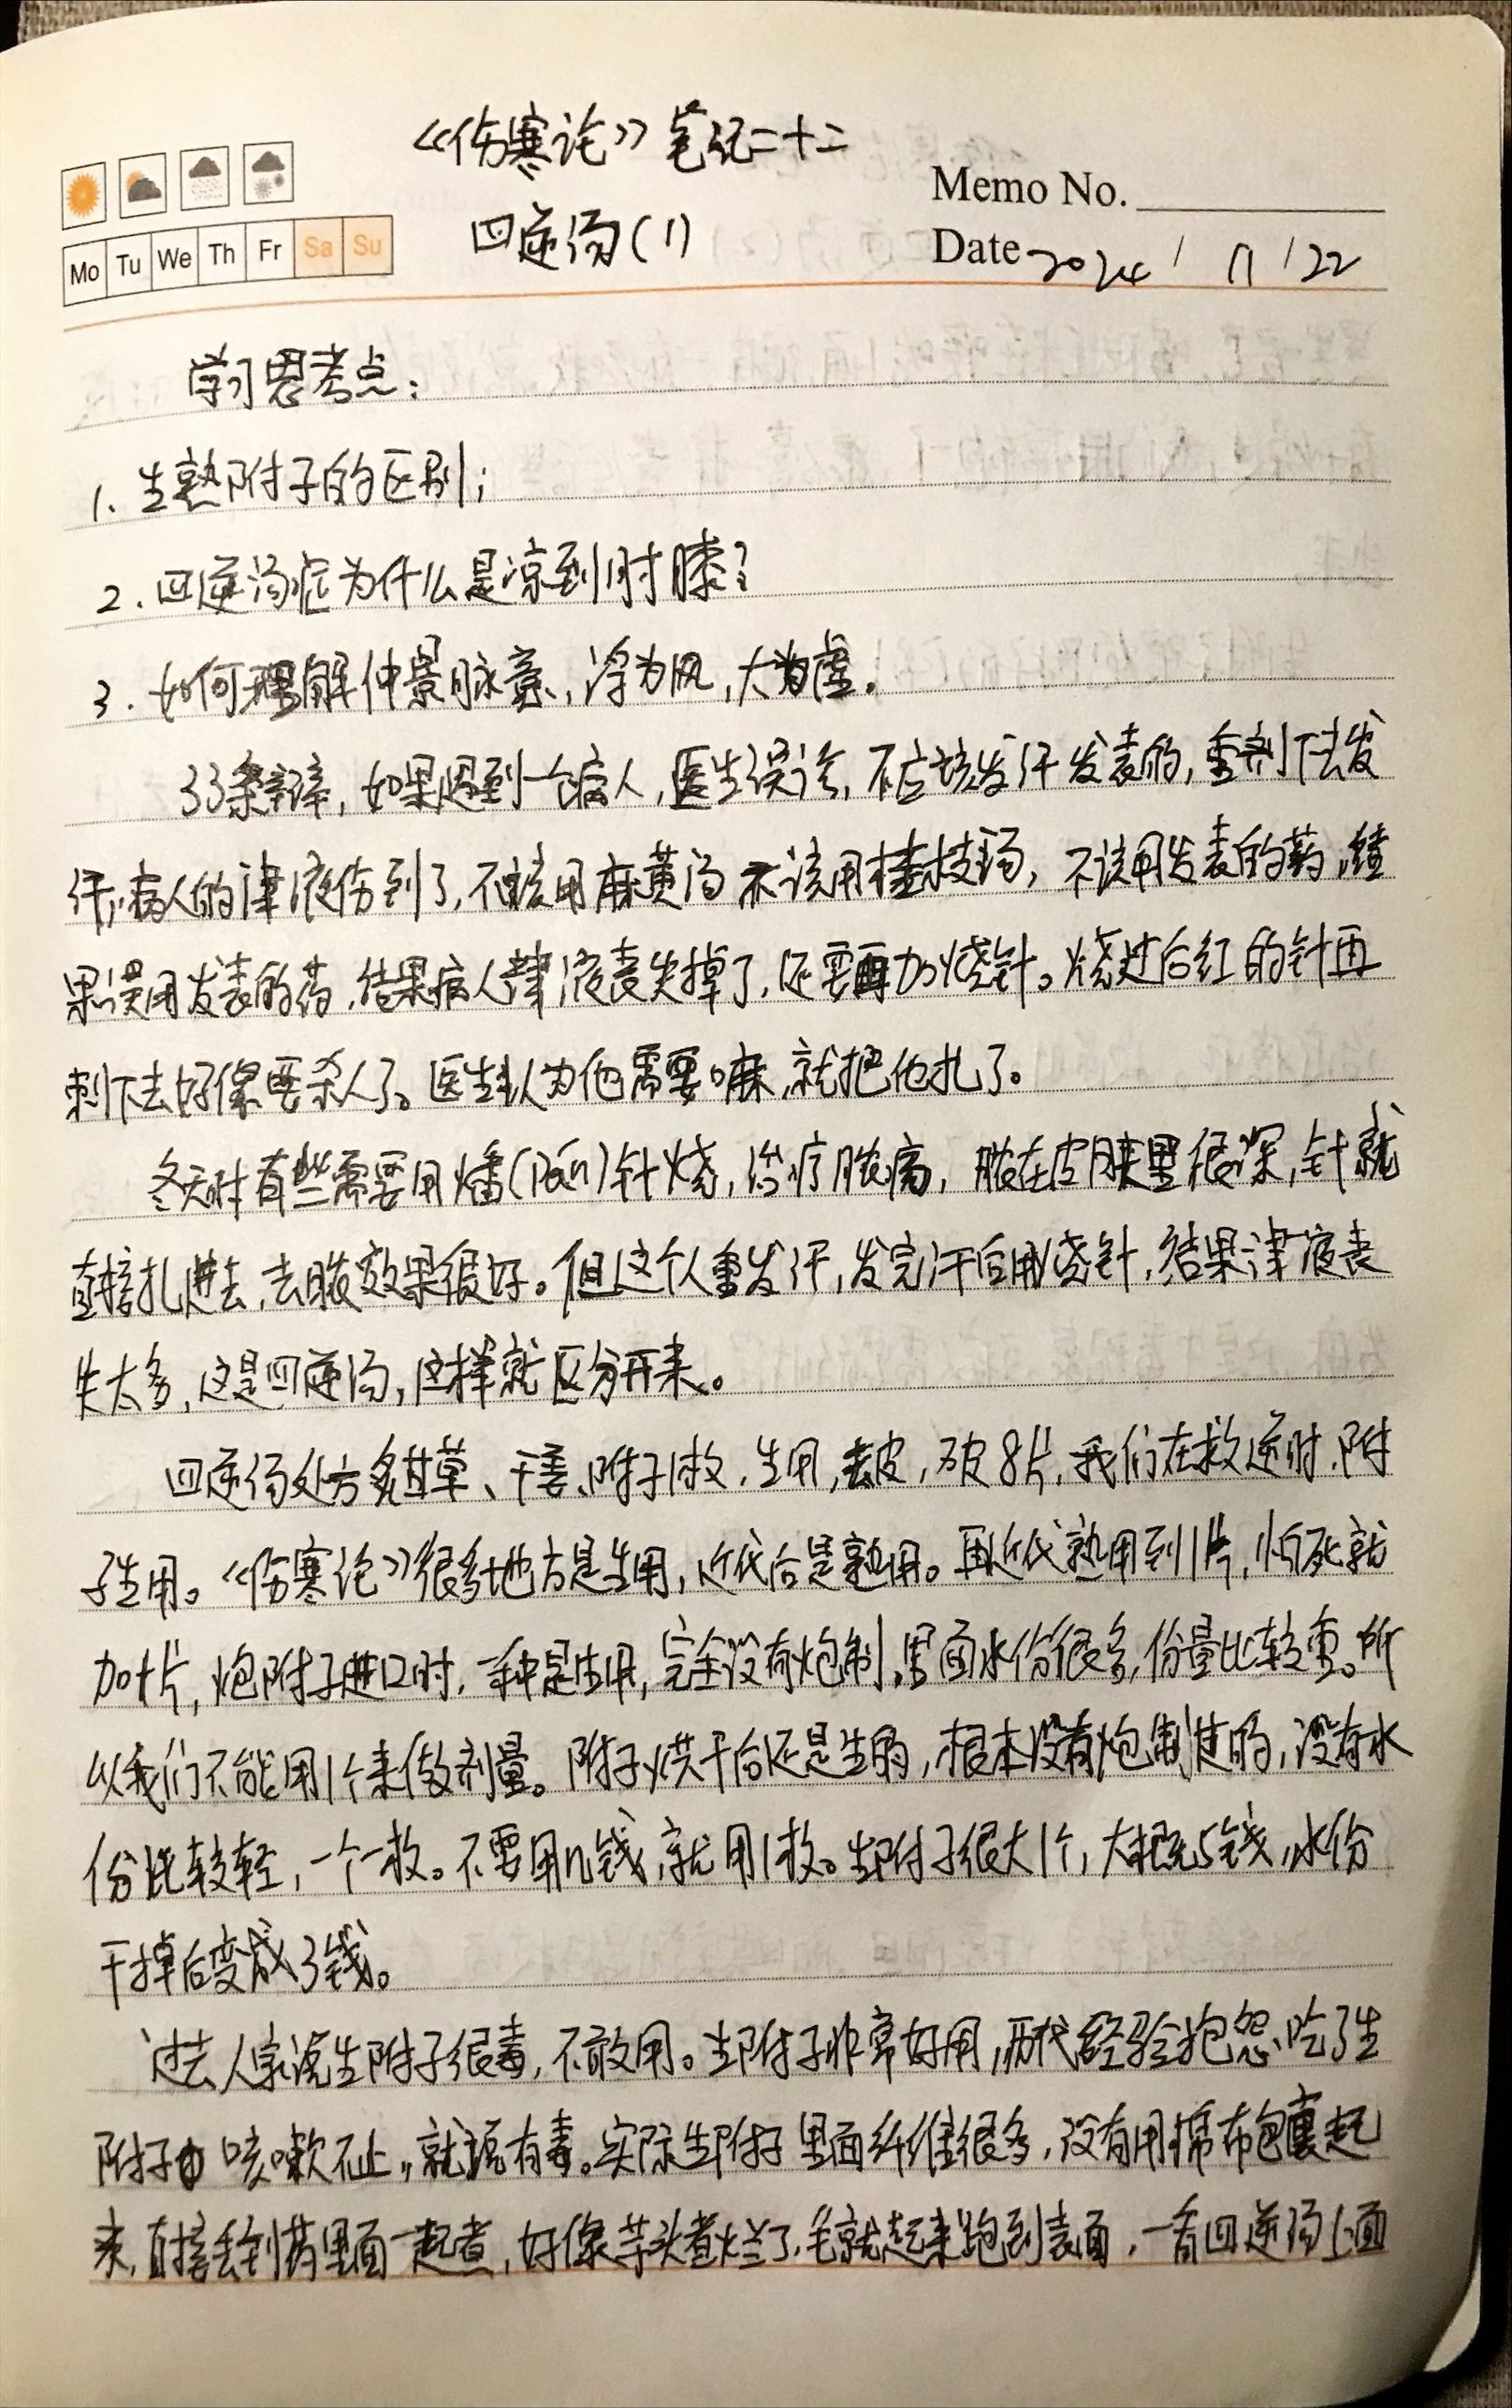 《伤寒论》笔记二十二
四逆汤(1)
Memo No.
Mo Tu We Th Fr Sa Su
Date 2024 / 11 / 22
学习思考点:
1. 生熟附子的区别;
2. 四逆汤症为什么是凉到肘膝?
3. 如何理解仲景脉意,浮为风,大为虚。
33条辨,如果遇到一个病人,医生误诊,不应该发汗发表的,重剂下去发
汗,病人的津液伤到了,不该用麻黄汤不该用桂枝汤,不该用发表的药,结
果误用发表的药,结果病人津液丧失掉了,还要再加烧针。烧过后红的针再
刺下去好像要杀人了。医生认为他需要嘛,就把他扎了。
冬天时有些需要用燔(fán)针烧,治疗脓疡,脓在皮肤里很深,针就
直接扎进去,去脓效果很好。但这个人重发汗,发完汗后用烧针,结果津液丧
失太多,这是四逆汤,这样就区分开来。
四逆汤处方炙甘草、干姜、附子1枚,生用,去皮,破8片,我们在救逆时,附
子生用。《伤寒论》很多地方是生用,近代后是熟用。再近代熟用到1片,怕死就
加1片,炮附子进口时,一种是生用,完全没有炮制,里面水份很多,份量比较重。所
以我们不能用1个来做剂量。附子烘干后还是生的,根本没有炮制过的,没有水
份比较轻,一个一枚。不要用几钱,就用1枚。生附子很大1个,大概5钱,水份
干掉后变成3钱。
过去人家说生附子很毒,不敢用。生附子非常好用,历代经验抱怨吃了生
附子咳嗽不止,就说有毒。实际生附子里面纤维很多,没有用棉布包裹起
来,直接丢到药里面一起煮,好像芋头煮烂了,毛就起来跑到表面,一看四逆汤上面